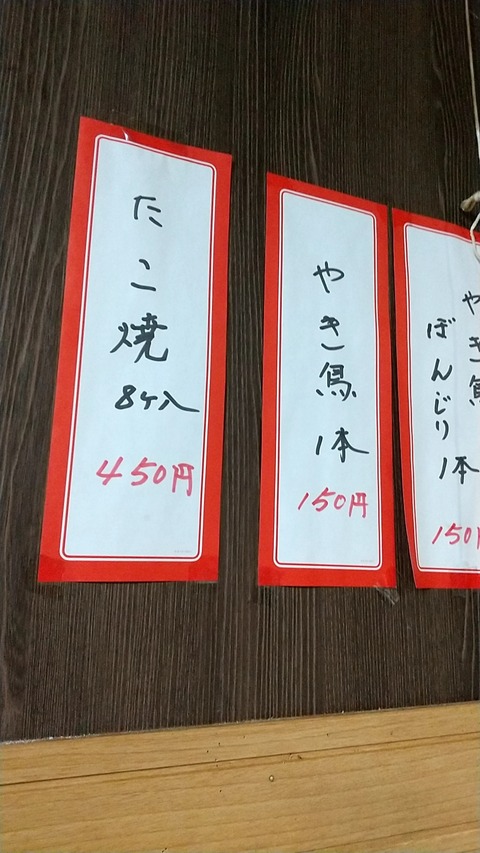 たこ焼
8ケ入
450円
やき鳥
1本
150円
やき鳥
ぼんじり
1本
150